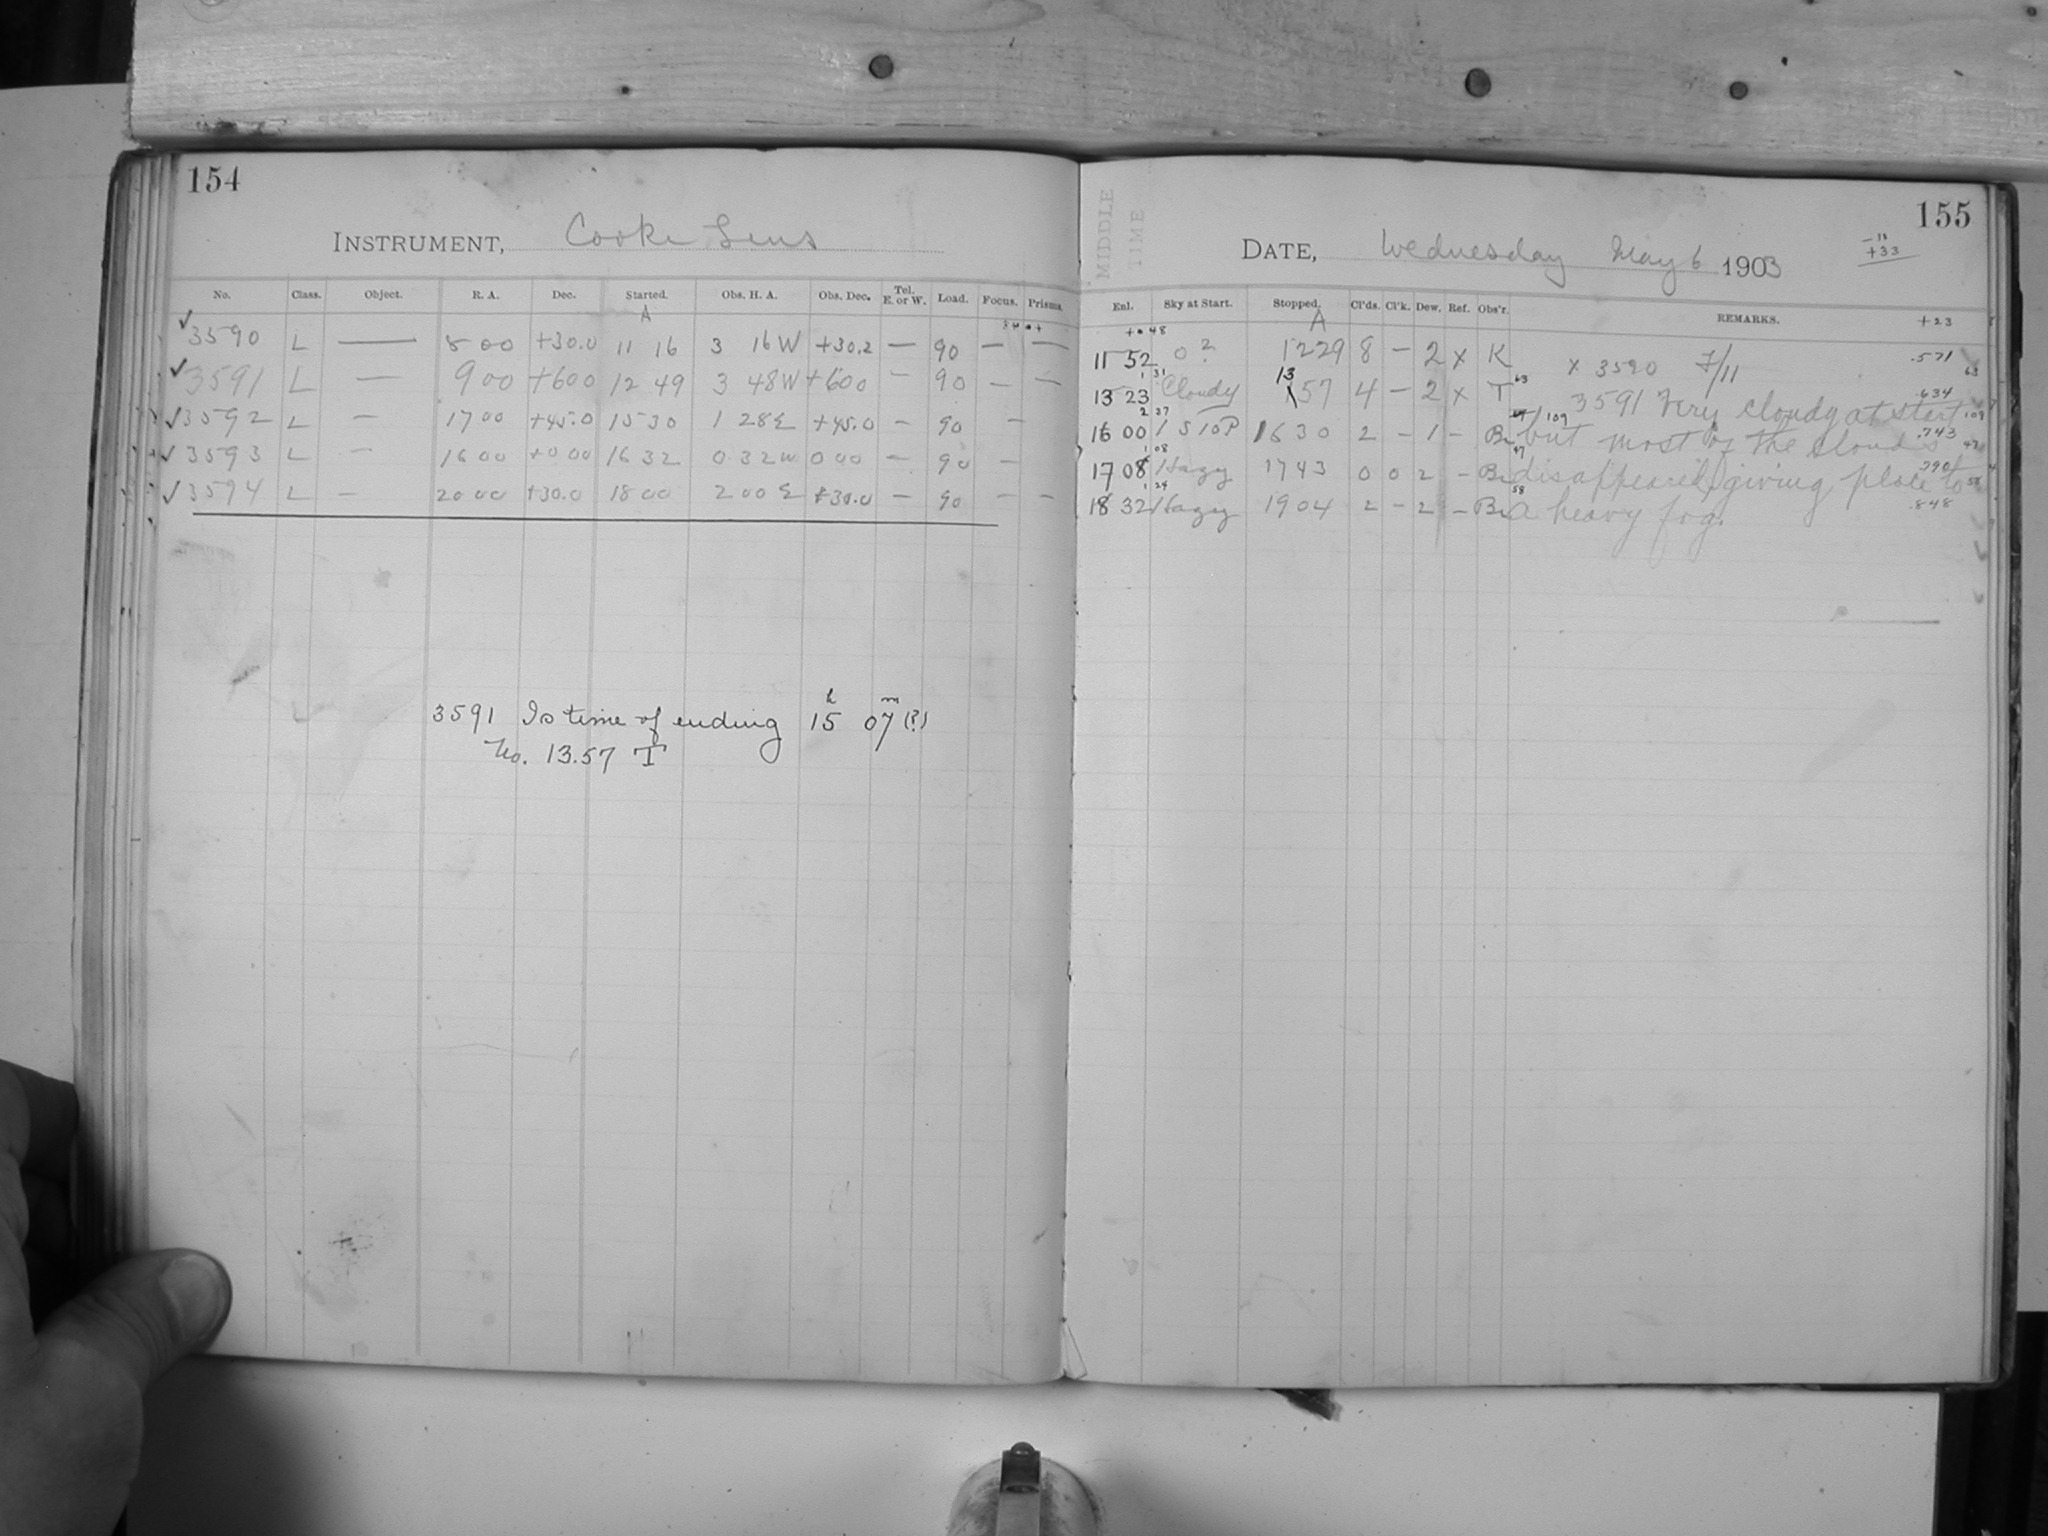 154
INSTRUMENT, Cooke Lens
No. Class. Object. R. A. Dec. Started. Obs. H. A. Obs. Dec. Tel. E. or W. Load. Focus. Prisms.
A
✓3590 L — 8 00 +30.0 11 16 3 16W +30.2 — 90 — —
✓3591 L — 9 00 +600 12 49 3 48W +600 — 90 — —
✓3592 L — 1700 +45.0 1530 1 28E +45.0 — 90 —
✓3593 L — 1600 +000 1632 0 32W 000 — 90 —
✓3594 L — 2000 +30.0 1800 2 00E +30.0 — 90 — —
3591 Is time of ending 15h 07m (?)
No. 13.57 T
MIDDLE
TIME
155
DATE, Wednesday May 6 1903
+33
Enl. Sky at Start. Stopped. Cl'ds. Cl'k. Dew. Ref. Obs'r. REMARKS. +23
A
48
11 52 0 ? 1229 8 — 2 x K x 3590 7/11 .571
1 31
13 23 Cloudy 13 57 4 — 2 x T 63 3591 Very cloudy at start .634
2 37
16 00 1 S 10P 1630 2 — 1 — Br 109 but most of the clouds .743
1 08
17 08 Hazy 1743 0 0 2 — Br 47 disappeared giving place to .790
1 24
18 32 Hazy 1904 2 — 2 — Br 58 a heavy fog. .848